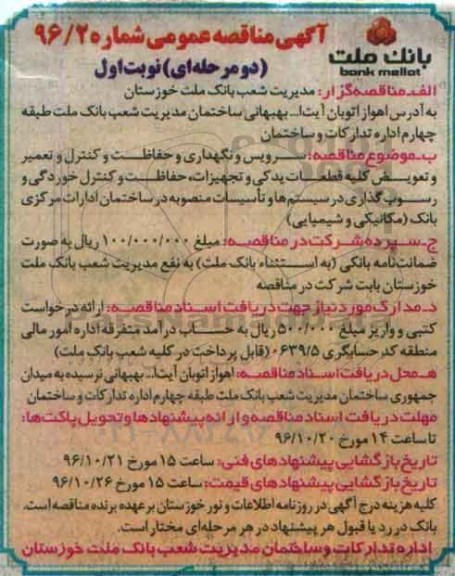 آگهی مناقصه عمومی شماره ۹۶/۲
(دو مرحله‌ای) نوبت اول
بانک ملت
bank mellat
الف-مناقصه‌گزار: مدیریت شعب بانک ملت خوزستان
به آدرس اهواز اتوبان آیت‌ا... بهبهانی ساختمان مدیریت شعب بانک ملت طبقه
چهارم اداره تدارکات و ساختمان
ب-موضوع مناقصه: سرویس و نگهداری و حفاظت و کنترل و تعمیر
و تعویض کلیه قطعات یدکی و تجهیزات، حفاظت و کنترل خوردگی و
رسوب گذاری در سیستم‌ها و تأسیسات منصوبه در ساختمان ادارات مرکزی
بانک (مکانیکی و شیمیایی)
ج-سپرده شرکت در مناقصه: مبلغ ۱۰۰/۰۰۰/۰۰۰ ریال به صورت
ضمانت‌نامه بانکی (به استثناء بانک ملت) به نفع مدیریت شعب بانک ملت
خوزستان بابت شرکت در مناقصه
د-مدارک مورد نیاز جهت دریافت اسناد مناقصه: ارائه درخواست
کتبی و واریز مبلغ ۵۰۰/۰۰۰ ریال به حساب درآمد متفرقه اداره امور مالی
منطقه کد حسابگری ۰۶۳۹/۵ (قابل پرداخت در کلیه شعب بانک ملت)
هـ-محل دریافت اسناد مناقصه: اهواز اتوبان آیت‌ا... بهبهانی نرسیده به میدان
جمهوری ساختمان مدیریت شعب بانک ملت طبقه چهارم اداره تدارکات و ساختمان
مهلت دریافت اسناد مناقصه و ارائه پیشنهادها و تحویل پاکت‌ها:
تا ساعت ۱۴ مورخ ۹۶/۱۰/۲۰
تاریخ بازگشایی پیشنهادهای فنی: ساعت ۱۵ مورخ ۹۶/۱۰/۲۱
تاریخ بازگشایی پیشنهادهای قیمت: ساعت ۱۵ مورخ ۹۶/۱۰/۲۶
کلیه هزینه درج آگهی در روزنامه اطلاعات و نور خوزستان بر عهده برنده مناقصه است.
بانک در رد یا قبول هر پیشنهاد در هر مرحله‌ای مختار است.
اداره تدارکات و ساختمان مدیریت شعب بانک ملت خوزستان